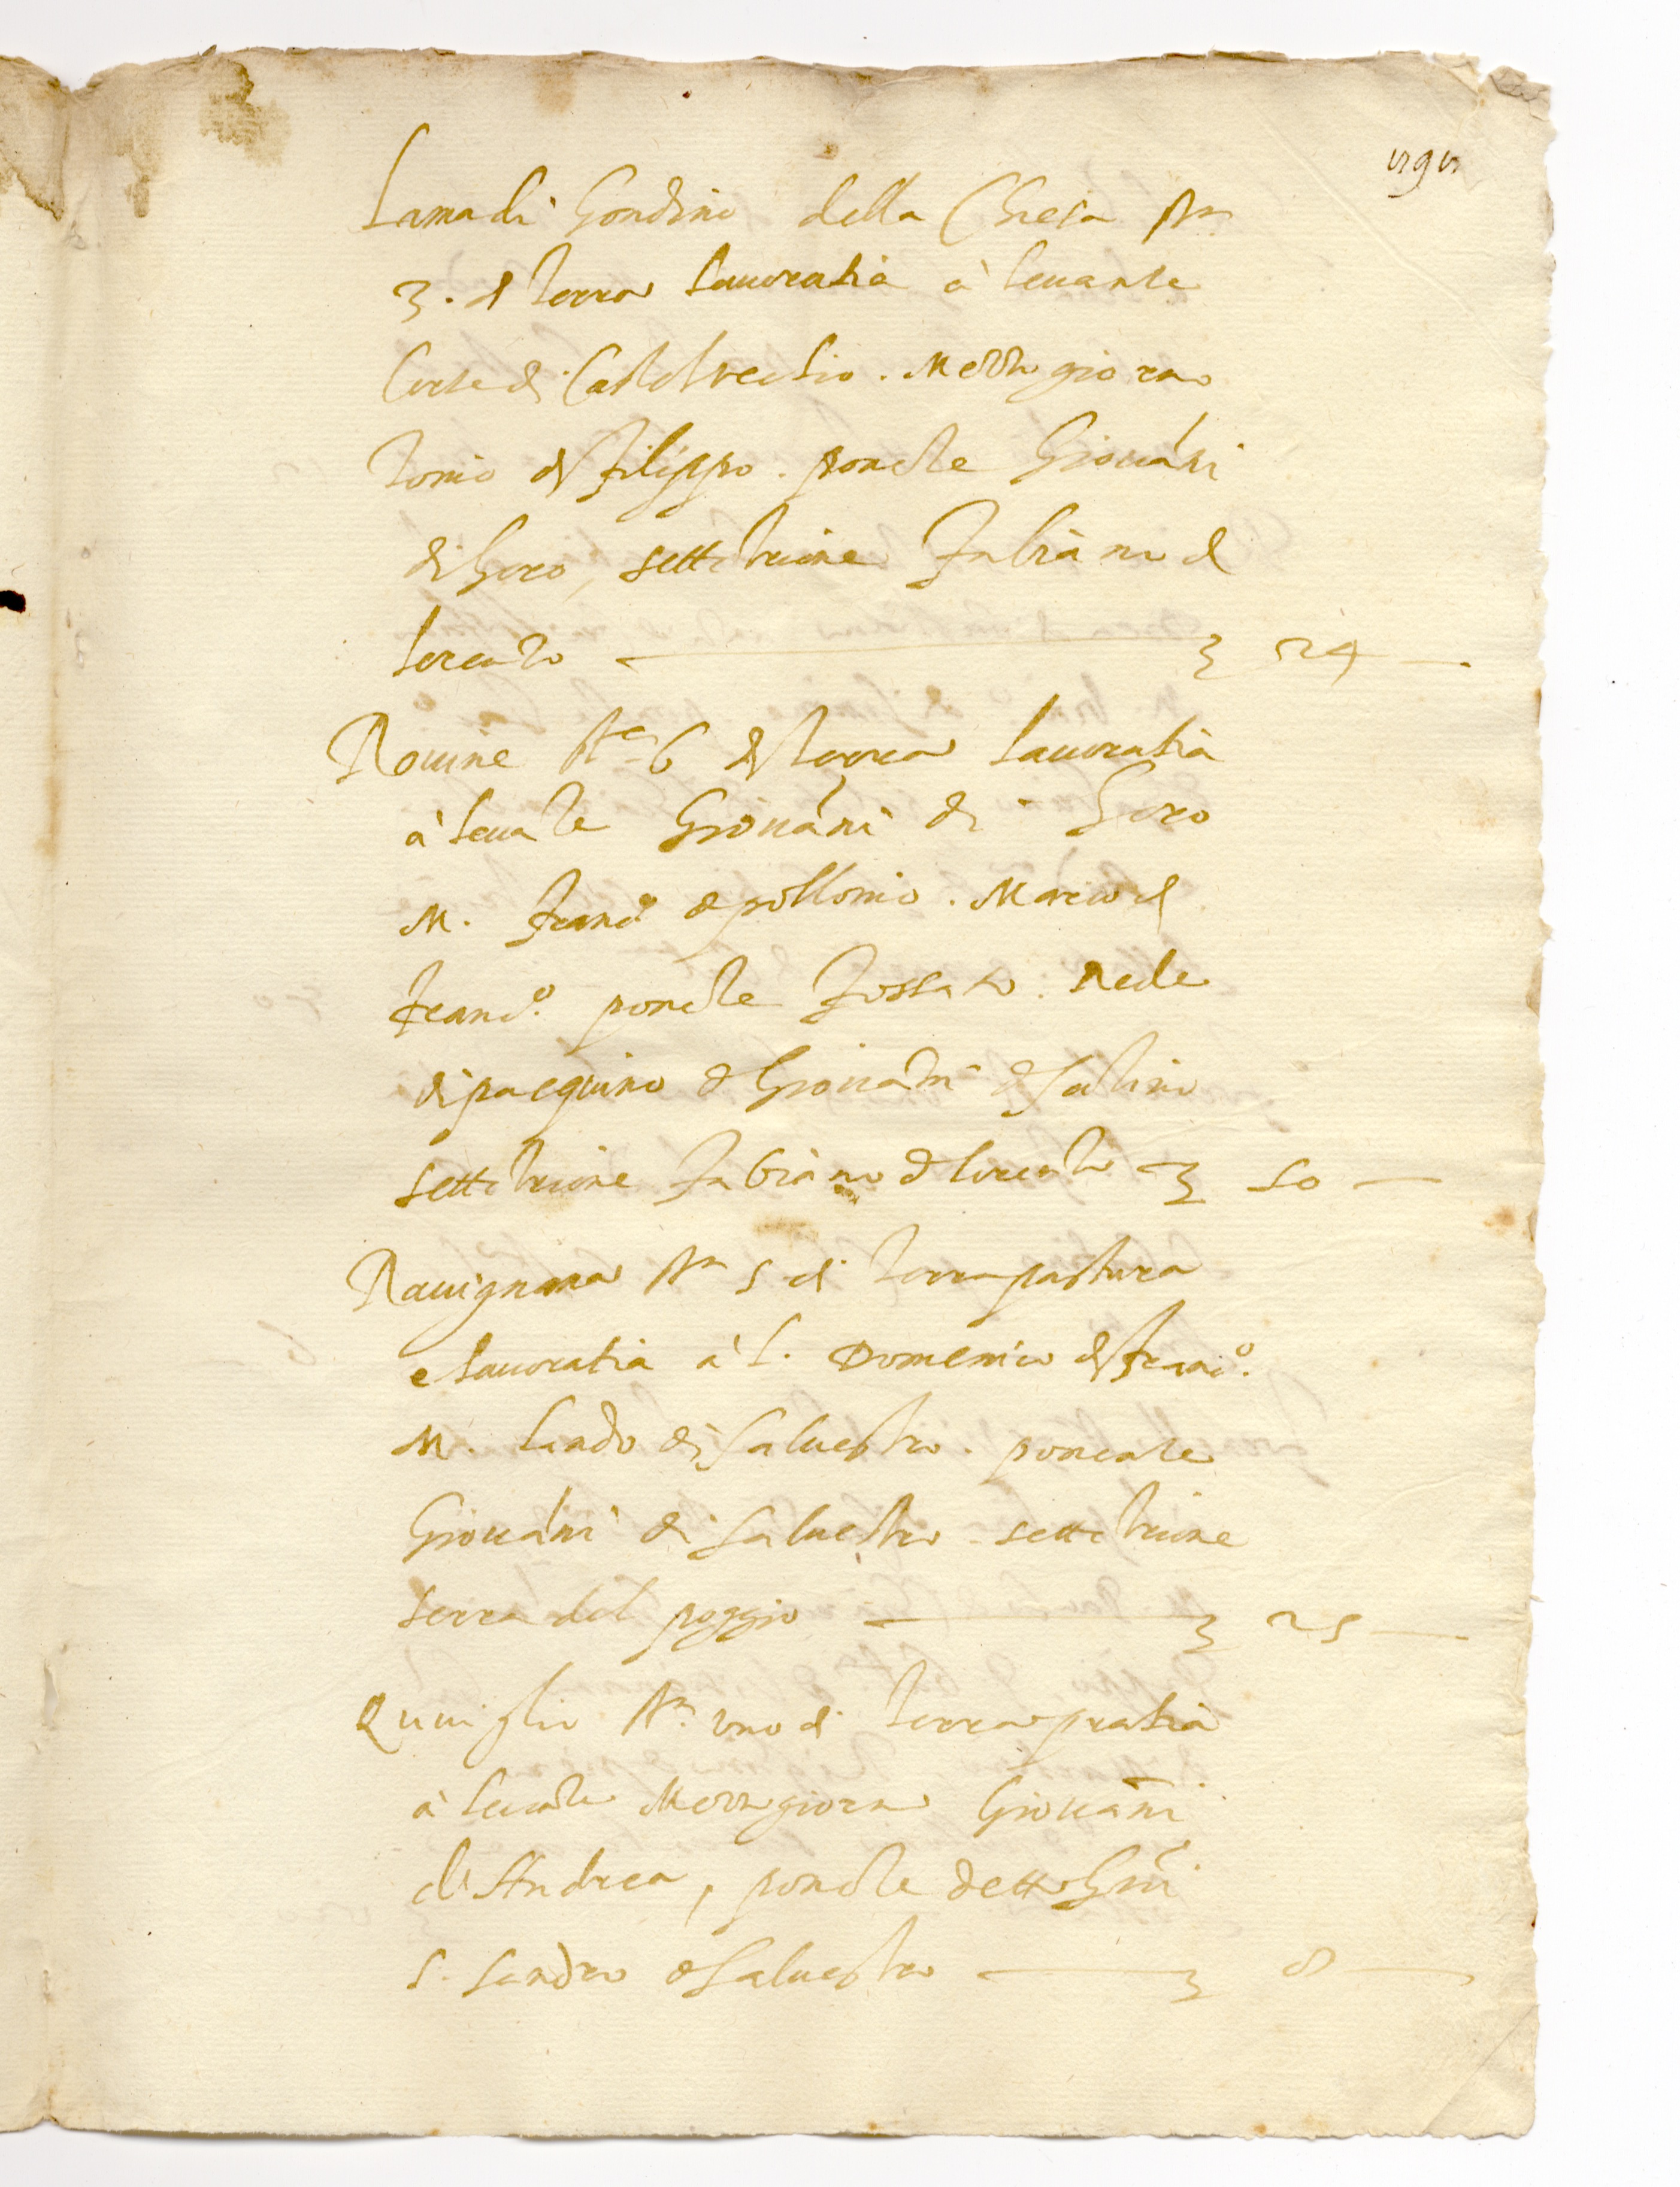 Lama di Gondino della Chiesa st.
3. di terra lauoratia à leuante
Corte di Casteluechio. Mezzo giorno
Tonio di Filippo. ponete Giouáni
di Goro, settetrione Fabiano di
Lorenzo 24
Rouine ste 6 di terra lauoratia
à leuate Giouáni di Goro
M. Franc.o Apollonio. Marco di
Franc.o ponete Fossato. Rede
di pasquino di Giouani di Salino
settetrione Fabiano di Lorenzo 50
Rauignana st. 5 di terra pastura
e lauoratia à L. Domenico di Franc.o
M. Sandro di Saluestro. ponente
Giouáni di Saluestro settetrione
Serra del poggio 25
Quuiglio st. uno di terra pratia
à leuate Mezzogiorno Giouāni
di Andrea, ponete detto Gini
S. Sandro di Saluestro 8